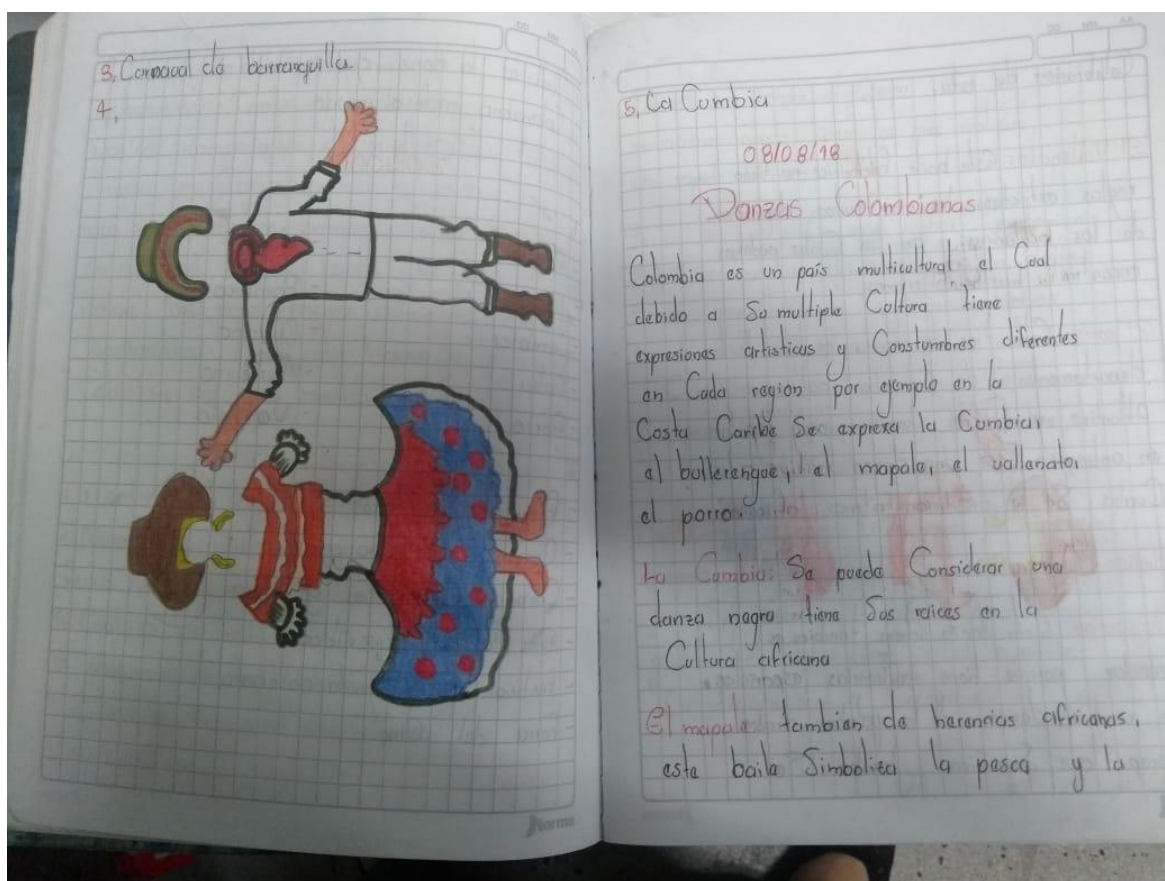 3, Carnaval de barranquilla
4,
Norma
5, La Cumbia
08/08/18
Danzas Colombianas
Colombia es un país multicultural el Cual
debido a So multiple Coltura tiene
expresiones artisticas y Constumbres diferentes
en Cada region por ejemplo en la
Costa Caribe Se exprexa la Cumbia,
el bullerengue, el mapale, el vallenato,
el porro.
La Cumbia: Se puede Considerar una
danza negra tiene Sos raices en la
Cultura africana
El mapale: tambien de herencias africanas,
este baile Simboliza la pesca y la